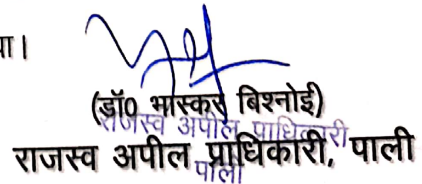 ा।
(डॉ0 भास्कर बिश्नोई)
राजस्व अपील प्राधिकारी
राजस्व अपील प्राधिकारी, पाली
पाली